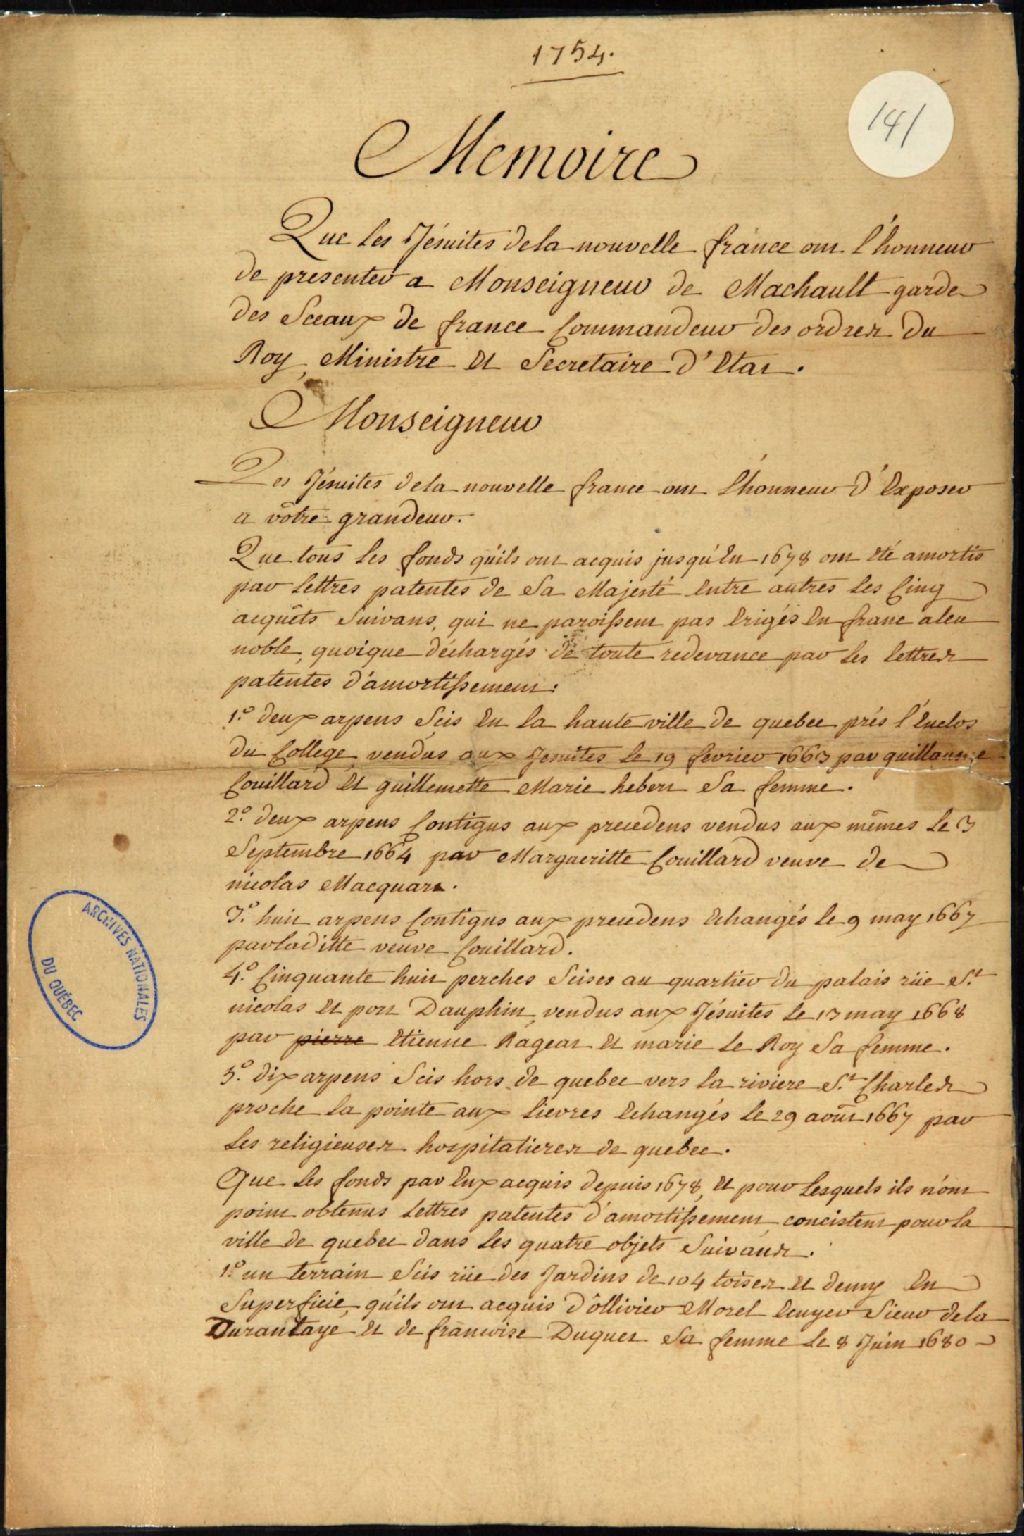 1754.
141
Memoire
Que les Jésuites de la nouvelle france ont l'honneur
de presenter a Monseigneur de Machault garde
des Sceaux de france Commandeur des ordres du
Roy, Ministre et Secretaire d'Etat.
Monseigneur
Les Jésuites de la nouvelle france ont l'honneur d'Exposer
a vôtre grandeur.
Que tous les fonds qu'ils ont acquis jusqu'en 1678 ont été amortis
par lettres patentes de Sa Majesté entre autres les Cinq
acquêts Suivans, qui ne paroissent pas Erigés En franc aleu
noble, quoique déchargés de toute redevance par les lettres
patentes d'amortissement:
1.º deux arpens Scis En la haute ville de quebec prés l'Enclos
du College vendus aux Jesuites le 19 fevrier 1663 par guillaume
Couillard et guillemette Marie hebert Sa femme.
2.º deux arpens Contigus aux precedens vendus aux mêmes le 3
Septembre 1664 par Margueritte Couillard veuve de
nicolas Macquart.
3.º huit arpens Contigus aux precedens Echangés le 9 may 1667
par laditte veuve Couillard.
4.º Cinquante huit perches Scises au quartier du palais rüe St
nicolas et port Dauphin, vendus aux Jésuites le 13 may 1668
par pierre Etienne Rageot et marie le Roy Sa femme.
5.º dix arpens Scis hors de quebec vers la riviere St Charles
proche la pointe aux lievres Echangés le 29 août 1667 par
les religieuses hospitalieres de quebec.
Que les fonds par Eux acquis depuis 1678, et pour lesquels ils n'ont
point obtenus lettres patentes d'amortissement concistent pour la
ville de quebec dans les quatre objets Suivants.
1.º un terrain Scis rüe des Jardins de 104 toises et demy En
Superficie, qu'ils ont acquis d'ôllivier Morel Ecuyer Sieur de la
Durantaye et de francoise Duquet Sa femme le 8 Juin 1680
ARCHIVES NATIONALES
DU QUÉBEC